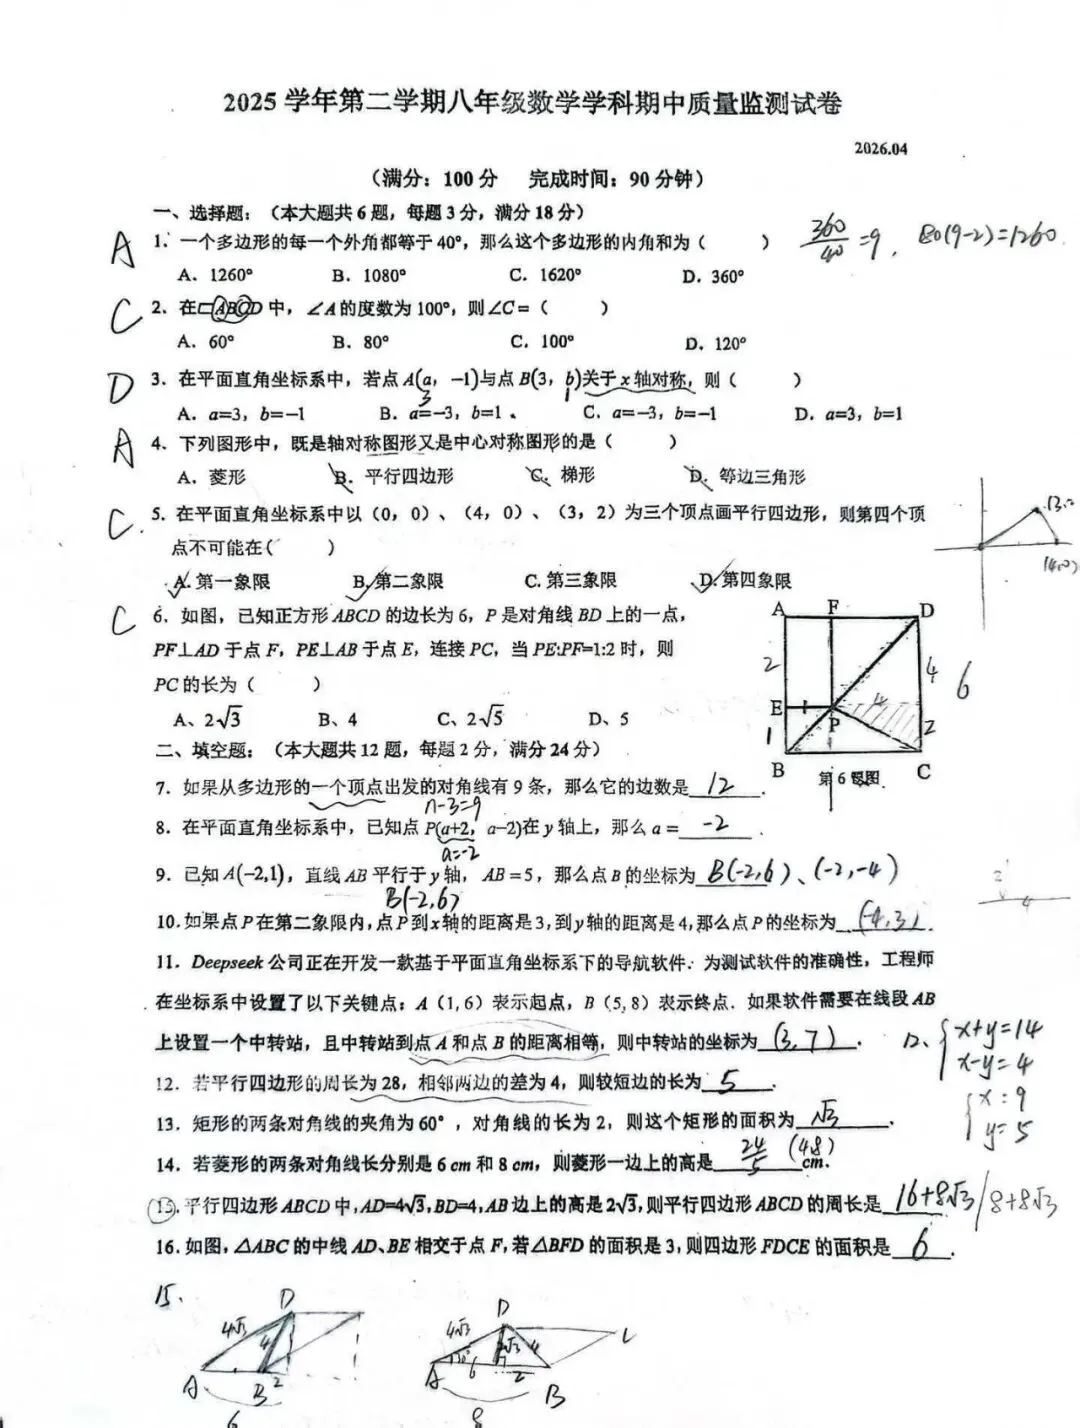 2025 学年第二学期八年级数学学科期中质量监测试卷
2026.04
（满分：100 分 完成时间：90 分钟）
一、选择题：（本大题共 6 题，每题 3 分，满分 18 分）
A 1、一个多边形的每一个外角都等于 40°，那么这个多边形的内角和为（ ） 360/40 =9, 80(9-2)=1260
A．1260° B．1080° C．1620° D．360°
C 2、在▱ABCD 中，∠A 的度数为 100°，则∠C=（ ）
A．60° B．80° C．100° D．120°
D 3、在平面直角坐标系中，若点 A(a，-1)与点 B(3，b)关于 x 轴对称，则（ ）
3 1
A．a=3，b=-1 B．a=-3，b=1 C．a=-3，b=-1 D．a=3，b=1
A 4、下列图形中，既是轴对称图形又是中心对称图形的是（ ）
A、菱形 B．平行四边形 C、梯形 D、等边三角形
C 5、在平面直角坐标系中以（0，0）、（4，0）、（3，2）为三个顶点画平行四边形，则第四个顶
点不可能在（ ）
A. 第一象限 B. 第二象限 C. 第三象限 D. 第四象限
(4,0)
C 6、如图，已知正方形 ABCD 的边长为 6，P 是对角线 BD 上的一点，
PF⊥AD 于点 F，PE⊥AB 于点 E，连接 PC，当 PE:PF=1:2 时，则
PC 的长为（ ）
A、2√3 B、4 C、2√5 D、5
A F D
2 4 6
E P
1 2
B C
第 6 题图
二、填空题：（本大题共 12 题，每题 2 分，满分 24 分）
7．如果从多边形的一个顶点出发的对角线有 9 条，那么它的边数是 12 ．
n-3=9
8．在平面直角坐标系中，已知点 P(a+2，a-2)在 y 轴上，那么 a = -2 ．
a=-2
9．已知 A(-2,1)，直线 AB 平行于 y 轴，AB =5，那么点 B 的坐标为 B(-2,6)、(-2,-4)
B(-2,6)
10.如果点 P 在第二象限内,点 P 到 x 轴的距离是 3,到 y 轴的距离是 4,那么点 P 的坐标为 (-4,3)．
11．Deepseek 公司正在开发一款基于平面直角坐标系下的导航软件．为测试软件的准确性，工程师
在坐标系中设置了以下关键点：A（1,6）表示起点，B（5,8）表示终点．如果软件需要在线段 AB
上设置一个中转站，且中转站到点 A 和点 B 的距离相等，则中转站的坐标为 (3,7) ．
12、 x+y=14
x-y=4
x=9
y=5
12．若平行四边形的周长为 28，相邻两边的差为 4，则较短边的长为 5 ．
13．矩形的两条对角线的夹角为 60°，对角线的长为 2，则这个矩形的面积为 √3 ．
14．若菱形的两条对角线长分别是 6 cm 和 8 cm，则菱形一边上的高是 24/5 (4.8) cm．
15．平行四边形 ABCD 中，AD=4√3，BD=4，AB 边上的高是 2√3，则平行四边形 ABCD 的周长是 16+8√3/8+8√3
16．如图，△ABC 的中线 AD、BE 相交于点 F，若△BFD 的面积是 3，则四边形 FDCE 的面积是 6 ．
15、
D
4√3 4
A B 2
6
D
4√3 2√3 4
30° 6 2
A B
8